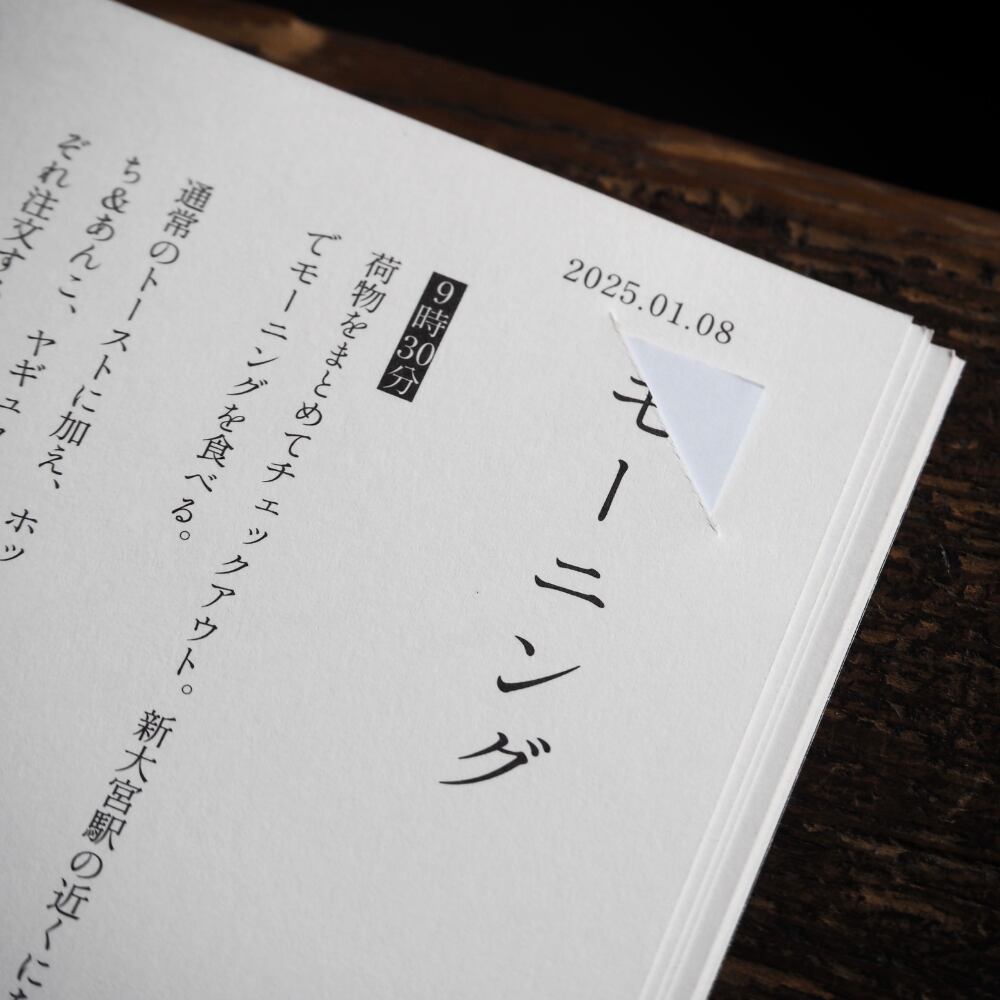 2025.01.08
モーニング
9時30分
荷物をまとめてチェックアウト。新大宮駅の近くに
でモーニングを食べる。
通常のトーストに加え、ホッ
ち&あんこ、ヤギュ
ぞれ注文す